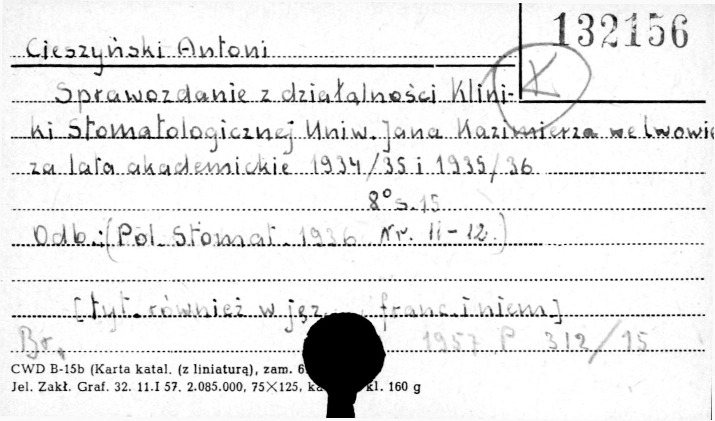 132156
Cieszyński Antoni
K
Sprawozdanie z działalności Klini-
ki Stomatologicznej Uniw. Jana Kazimierza we Lwowie
za lata akademickie 1934/35 i 1935/36
8° s. 15
Odb.: (Pol. Stomat. 1936 Nr. 11-12.)
[tyt. również w jęz. franc. i niem.]
Br. 1957 P 312/15
CWD B-15b (Karta katal. (z liniaturą), zam. 6
Jel. Zakł. Graf. 32. 11.I 57. 2.085.000, 75×125, kl. 160 g